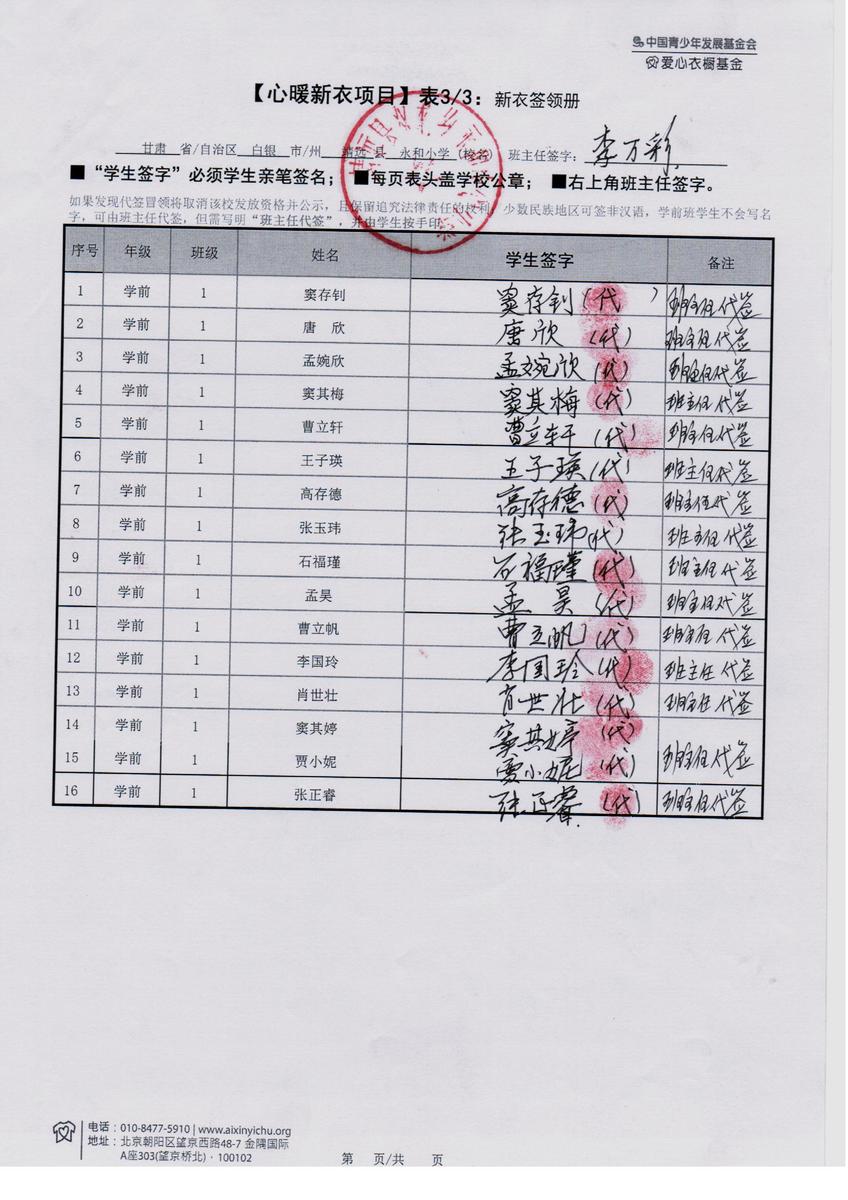 中国青少年发展基金会
爱心衣橱基金
【心暖新衣项目】表3/3：新衣签领册
甘肃 省/自治区 白银 市/州 靖远 县 永和小学（校名） 班主任签字：李万彩
■“学生签字”必须学生亲笔签名； ■每页表头盖学校公章； ■右上角班主任签字。
如果发现代签冒领将取消该校发放资格并公示，且保留追究法律责任的权利，少数民族地区可签非汉语，学前班学生不会写名
字，可由班主任代签，但需写明“班主任代签”，并由学生按手印
序号 年级 班级 姓名 学生签字 备注
1 学前 1 窦存钊 窦存钊（代） 班主任代签
2 学前 1 唐 欣 唐欣（代） 班主任代签
3 学前 1 孟婉欣 孟婉欣（代） 班主任代签
4 学前 1 窦其梅 窦其梅（代） 班主任代签
5 学前 1 曹立轩 曹立轩（代） 班主任代签
6 学前 1 王子瑛 王子瑛（代） 班主任代签
7 学前 1 高存德 高存德（代） 班主任代签
8 学前 1 张玉玮 张玉玮（代） 班主任代签
9 学前 1 石福瑾 石福瑾（代） 班主任代签
10 学前 1 孟昊 孟昊（代） 班主任代签
11 学前 1 曹立帆 曹立帆（代） 班主任代签
12 学前 1 李国玲 李国玲（代） 班主任代签
13 学前 1 肖世壮 肖世壮（代） 班主任代签
14 学前 1 窦其婷 窦其婷（代）
15 学前 1 贾小妮 贾小妮（代） 班主任代签
16 学前 1 张正睿 张正睿（代） 班主任代签
电话：010-8477-5910 | www.aixinyichu.org
地址：北京朝阳区望京西路48-7 金隅国际
A座303(望京桥北)·100102
第 页/共 页